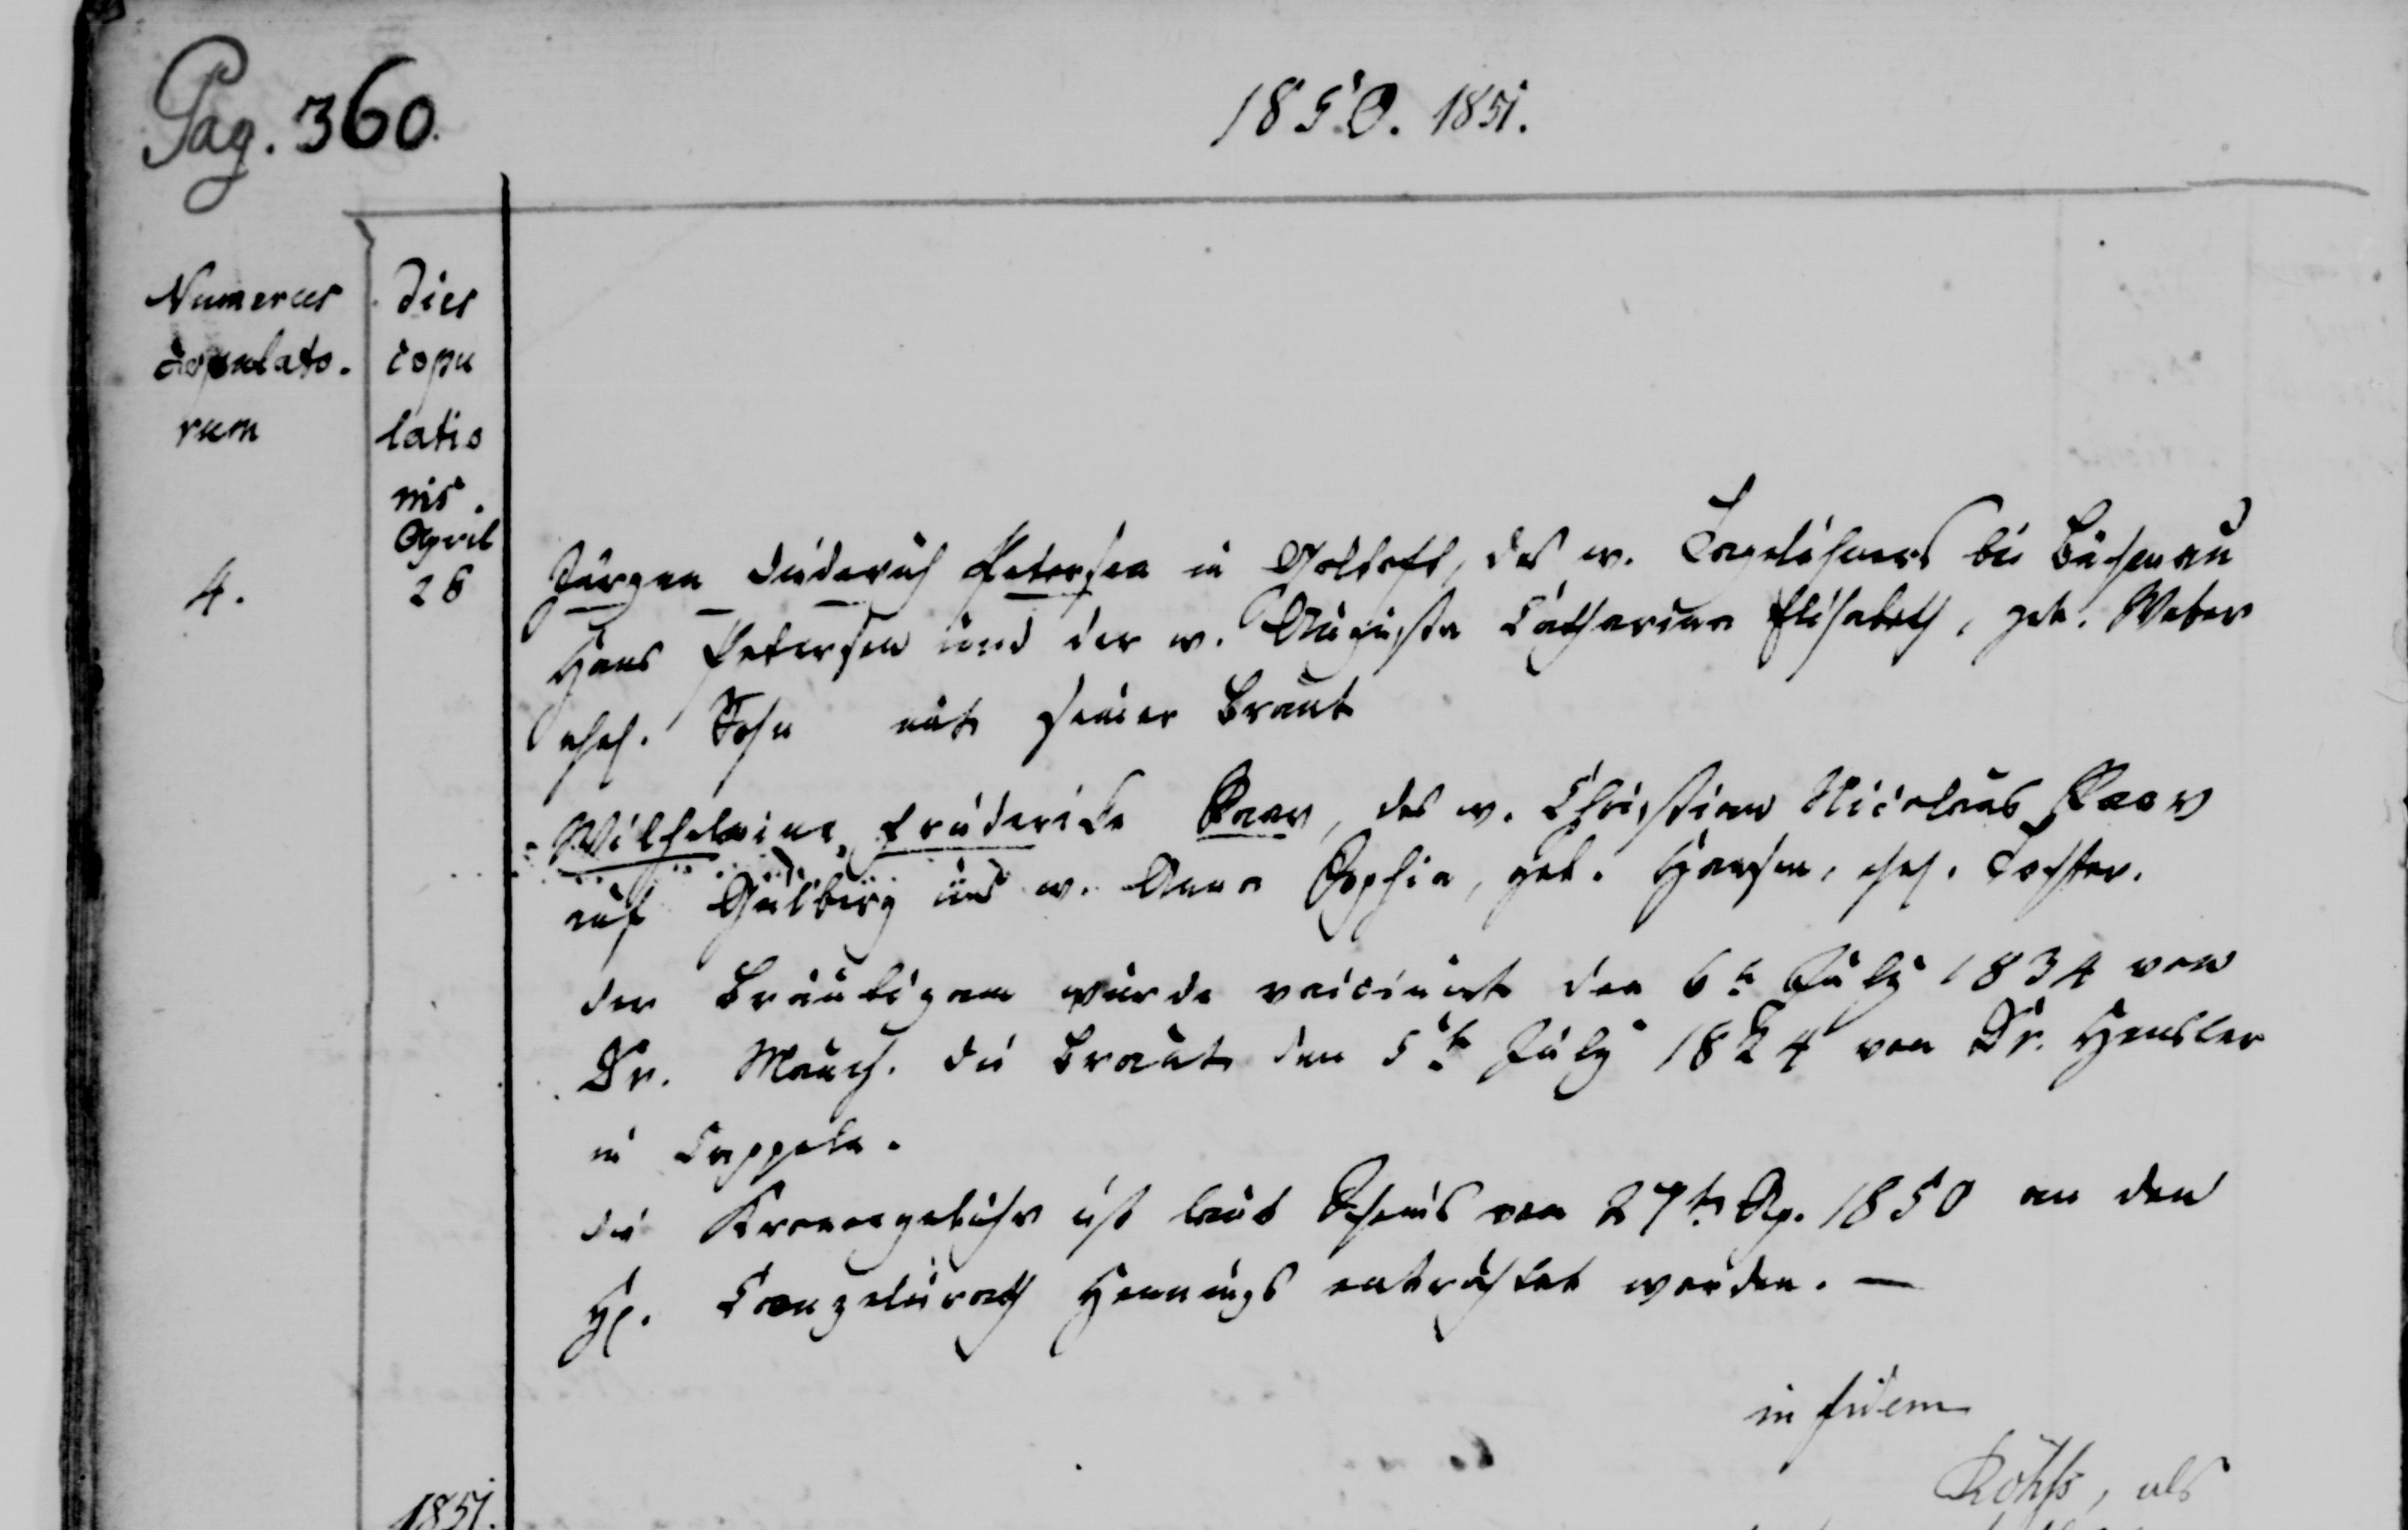 Pag. 360.
1850. 1851.
Numerus
copulato-
rum
Dies
copu
latio
nis.
April
4.
28
Jürgen Diederich Petersen in Goltoft, des w. Tagelöhners bei
Hans Petersen und der w. Augusta Catharina Elisabeth, geb. Weber
ehel. Sohn mit seiner Braut
Wilhelmine Friederike Paar, des w. Christian Nicolaus Paar
auf und w. Anna Sophia, geb. Hansen, ehel. Tochter.
der Bräutigam wurde vaccinirt den 6t July 1834 von
Dr. die Braut den 5t July 1824 von Dr. Hensler
in Cappeln.
die ist laut Scheins von 27t Ap. 1850 an den
H. Canzeleirath Hennings entrichtet worden. —
in fidem
, als
1851.